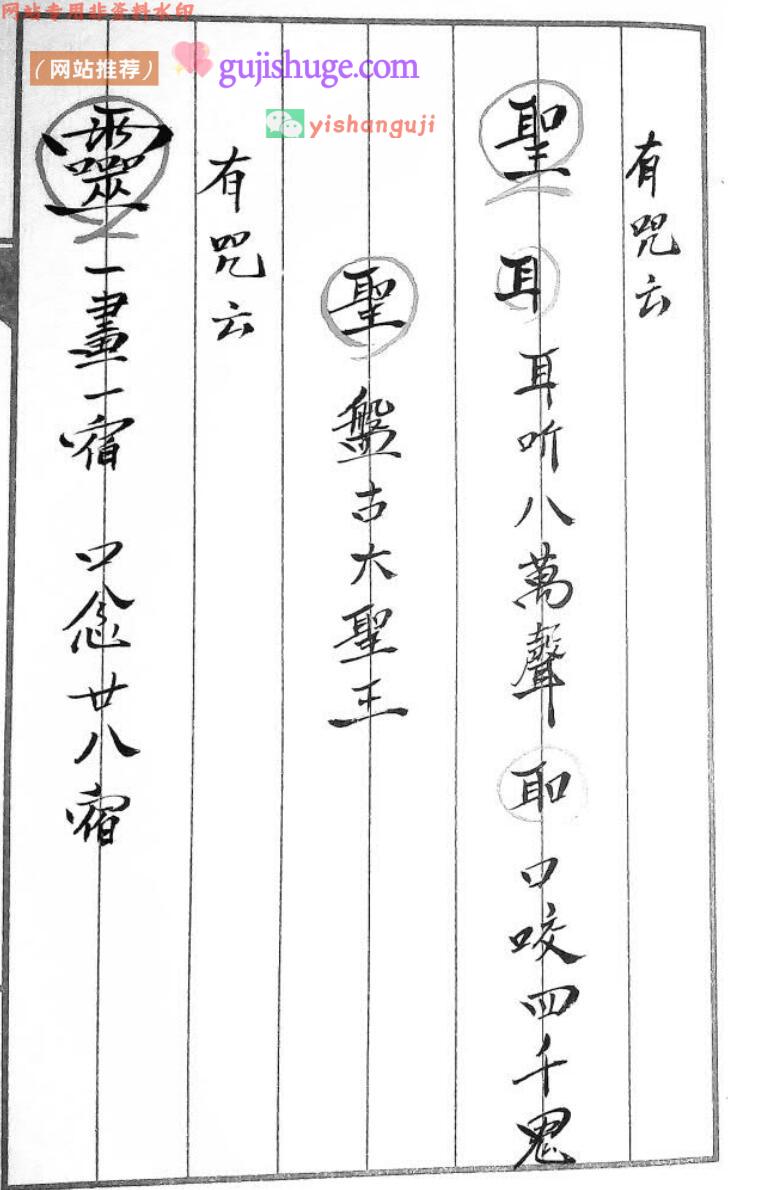 网站专用非资料水印
（网站推荐）
gujishuge.com
yishanguji
有咒云
聖 耳 耳听八萬聲 耶 口咬四千鬼
聖 盤古大聖王
有咒云
一畫一宿 口念廿八宿